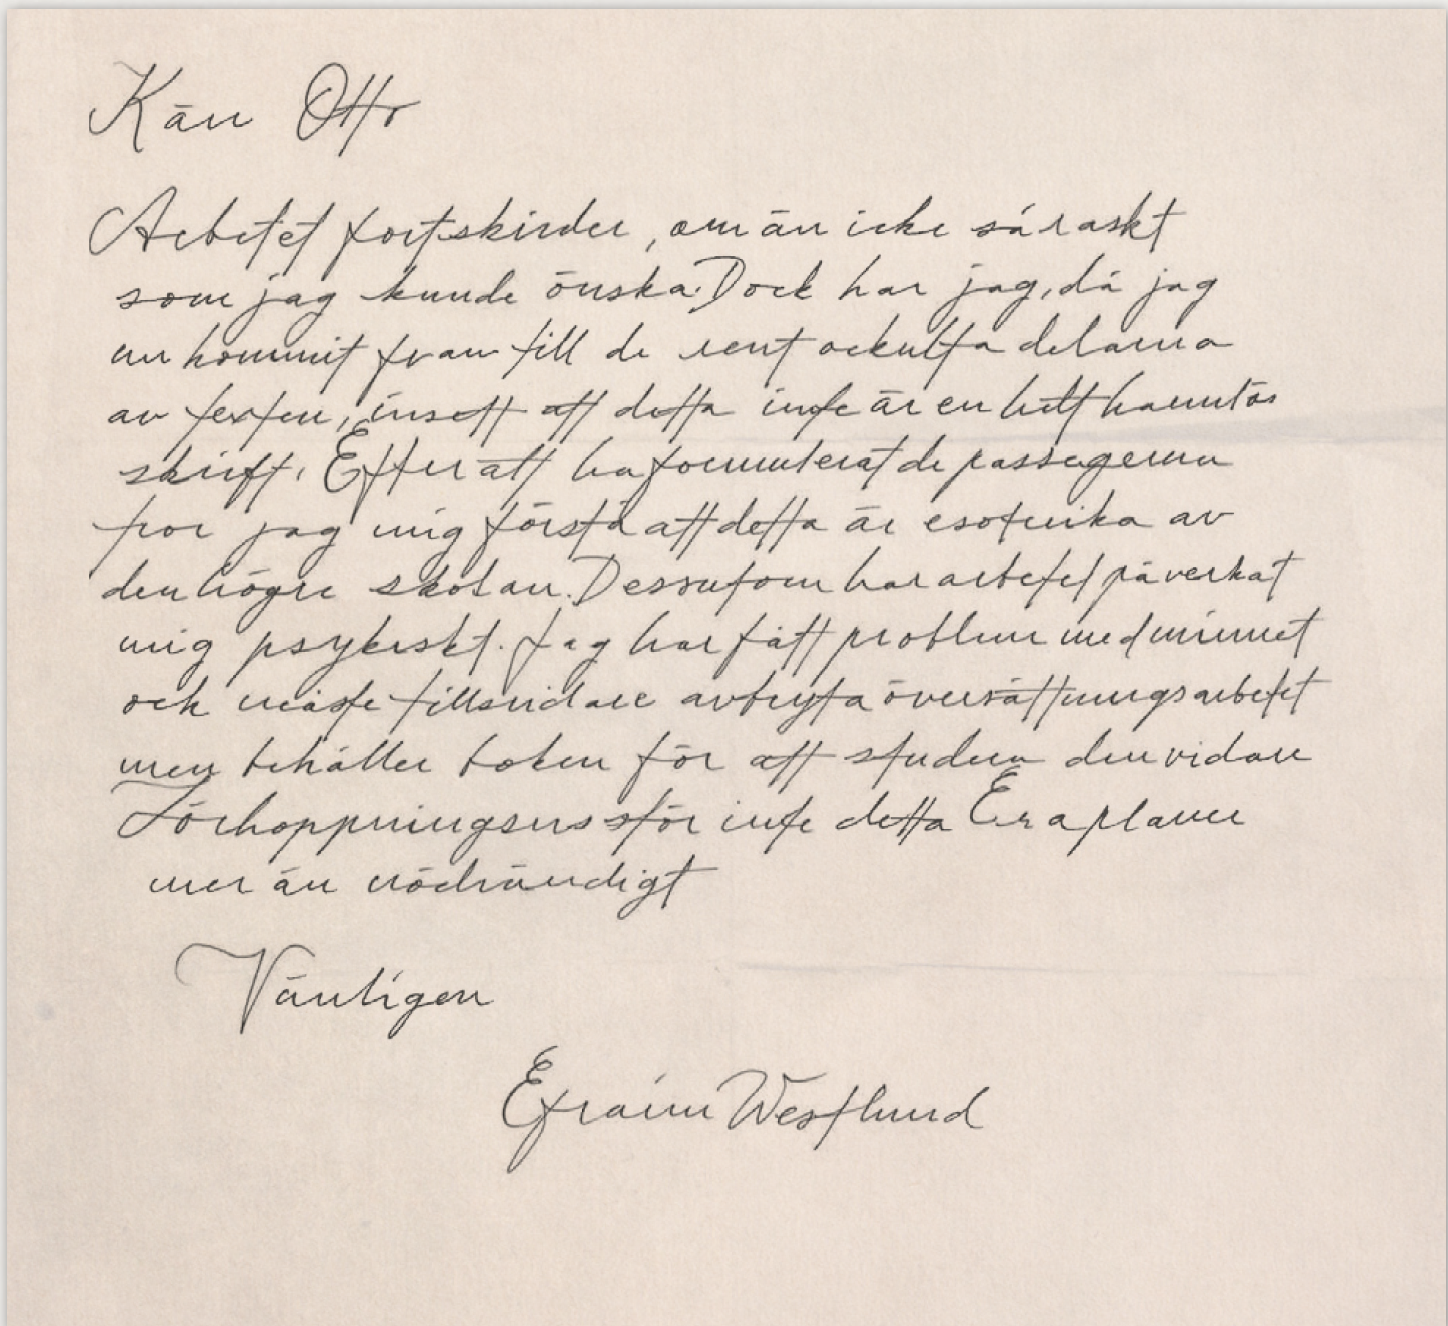 Käre Otto
Arbetet fortskrider, om än icke så raskt
som jag kunde önska. Dock har jag, då jag
nu kommit fram till de rent ockulta delarna
av texten, insett att detta inte är en helt harmlös
skrift. Efter att ha formulerat de passagerna
tror jag mig förstå att detta är esoterika av
den högre skolan. Dessutom har arbetet påverkat
mig psykiskt. Jag har fått problem med minnet
och måste tillsvidare avbryta översättningsarbetet
men behåller boken för att studera den vidare
Förhoppningsvis stör inte detta Era planer
mer än nödvändigt
Vänligen
Efraim Westlund